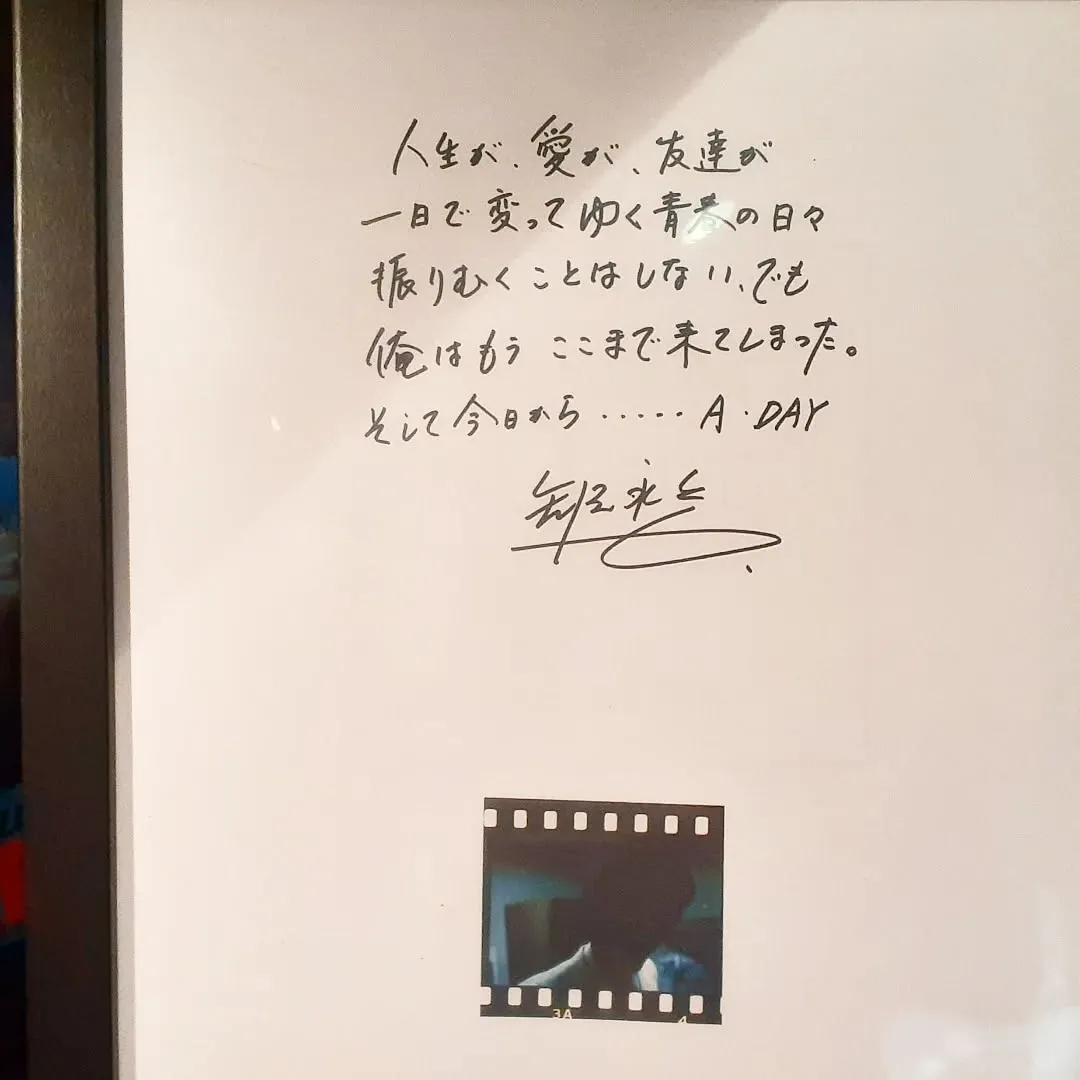 人生が、愛が、友達が
一日で変ってゆく青春の日々
振りむくことはしない、でも
俺はもうここまで来てしまった。
そして今日から・・・・・A・DAY
矢沢永吉
3A
4